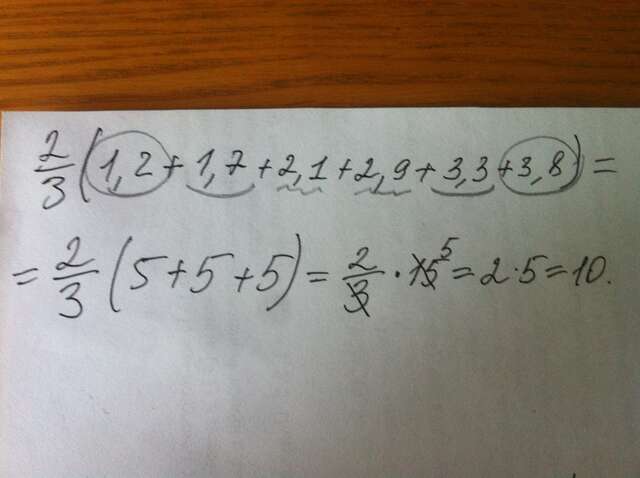 2/3 (1,2 + 1,7 + 2,1 + 2,9 + 3,3 + 3,8) =
= 2/3 (5 + 5 + 5) = 2/3 · 15 5 = 2 · 5 = 10.